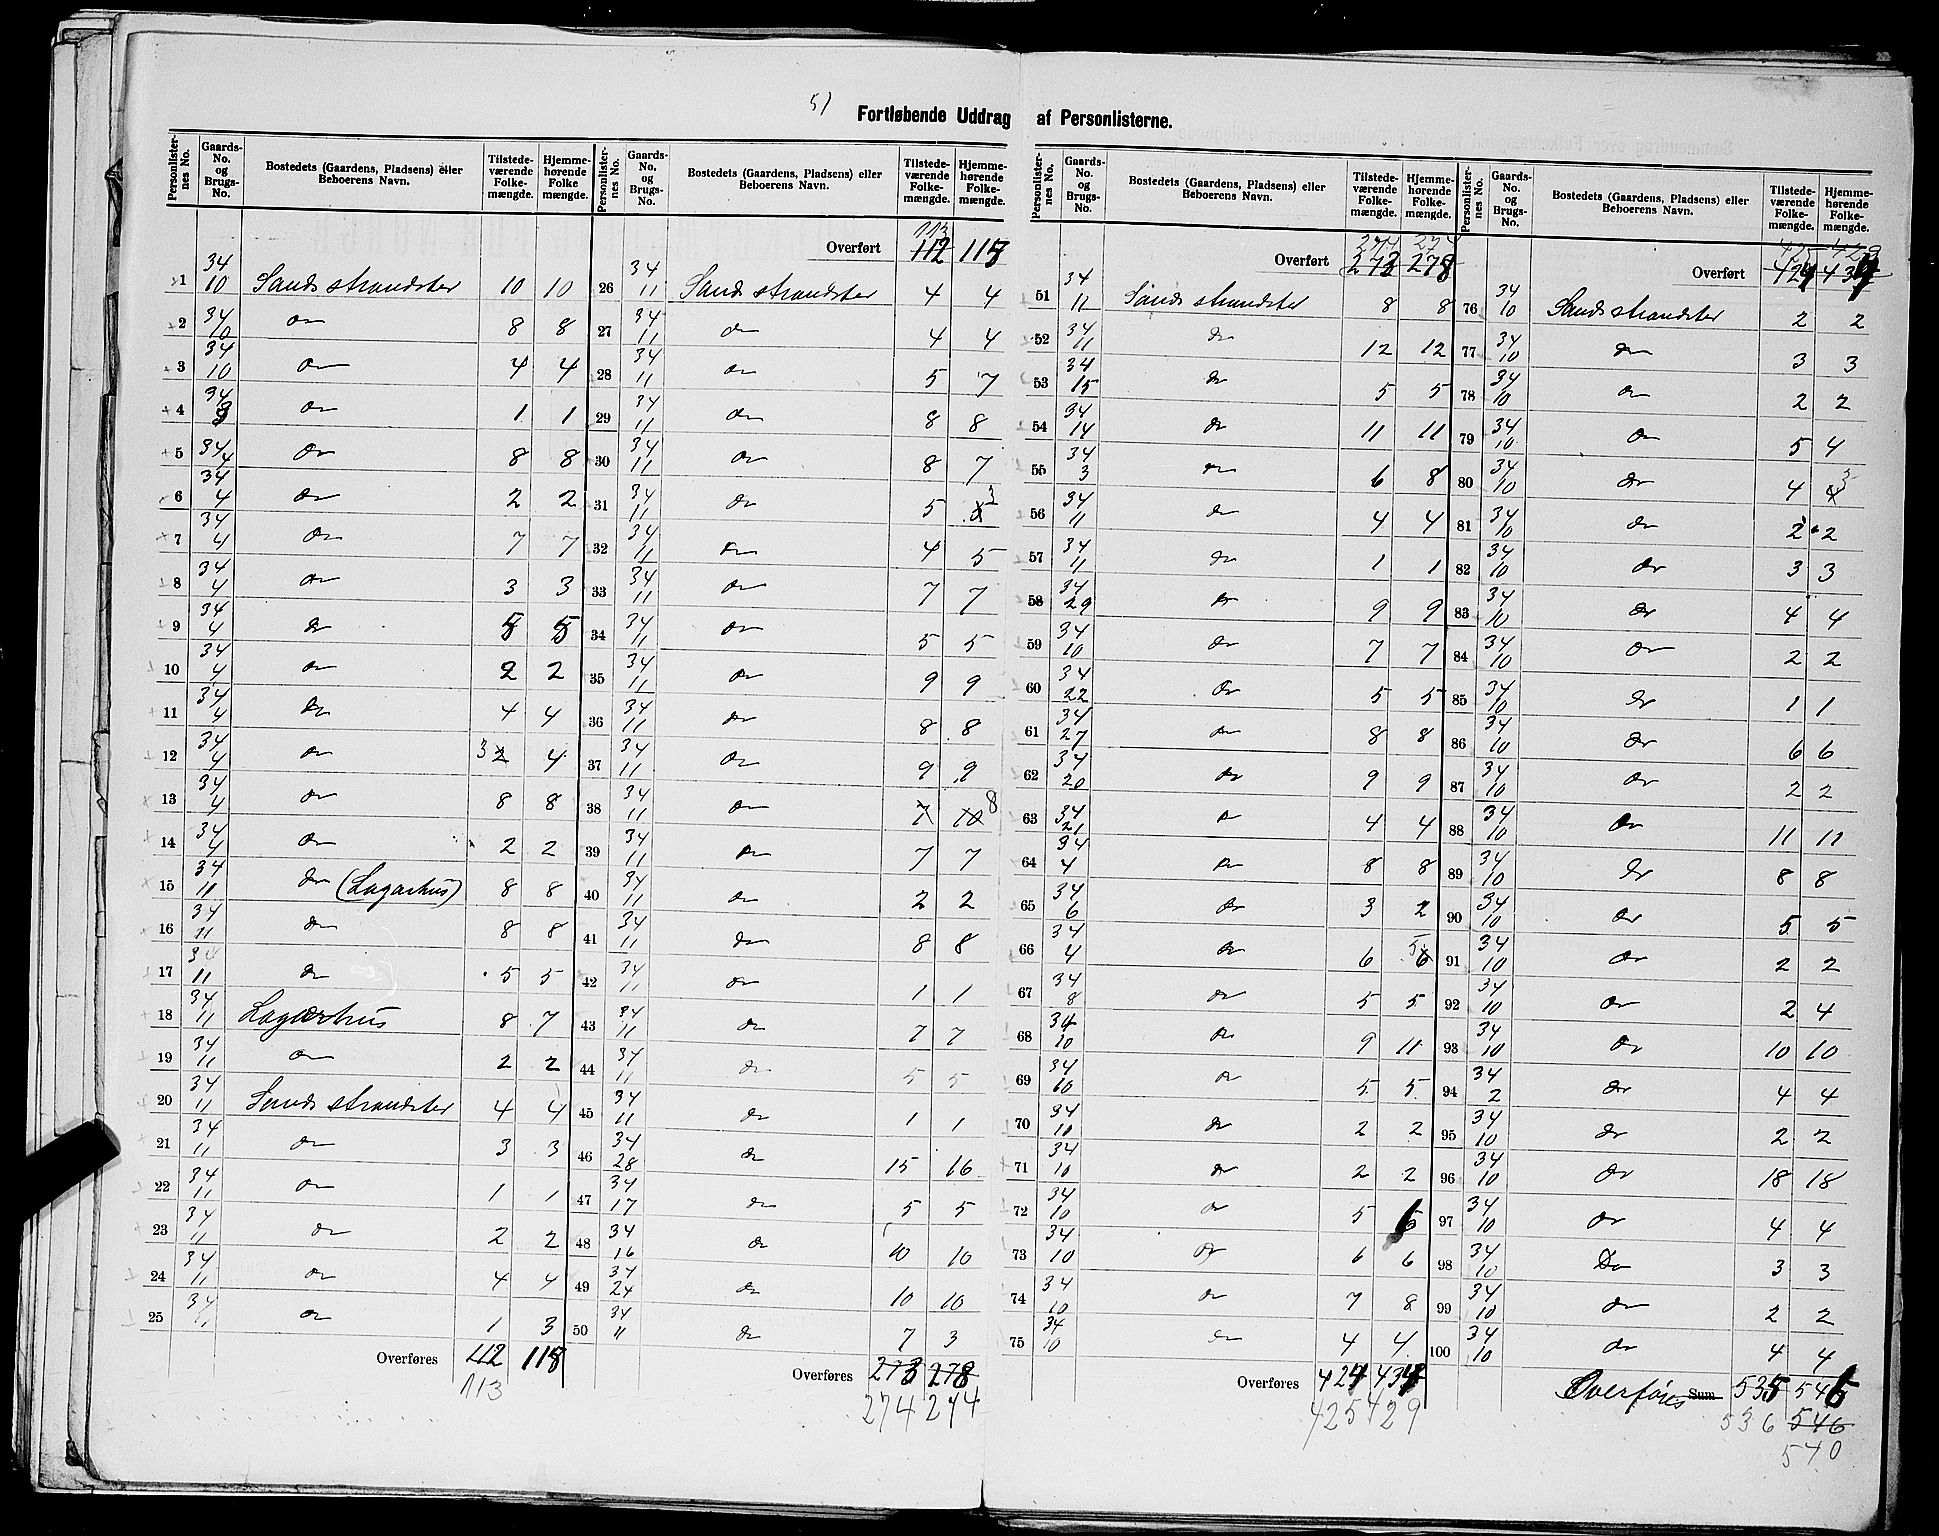 5)
Fortløbende Uddrag af Personlisterne.
Personlister-nes No. Gaards-No. og Brugs-No. Bostedets (Gaardens, Pladsens) eller Beboerens Navn. Tilstede-værende Folke-mængde. Hjemme-hørende Folke mængde.
1 34 10 Sands strandster 10 10
2 34 10 do 8 8
3 34 10 do 4 4
4 34 do 1 1
5 34 4 do 8 8
6 34 4 do 2 2
7 34 4 do 7 7
8 34 4 do 3 3
9 34 4 do 5 5
10 34 4 do 2 2
11 34 4 do 4 4
12 34 4 do 3 2 4
13 34 4 do 8 8
14 34 4 do 2 2
15 34 11 do (Lagarhus) 8 8
16 34 11 do 8 8
17 34 11 do 5 5
18 34 11 Lagarhus 8 7
19 34 11 do 2 2
20 34 11 Sands strandster 4 4
21 34 11 do 3 3
22 34 11 do 1 1
23 34 11 do 2 2
24 34 11 do 4 4
25 34 11 do 1 3
Overføres 112 118
113
Personlister-nes No. Gaards-No. og Brugs-No. Bostedets (Gaardens, Pladsens) eller Beboerens Navn. Tilstede-værende Folke-mængde. Hjemme-hørende Folke-mængde.
113
Overført 112 118
26 34 11 Sands strandster 4 4
27 34 11 do 4 4
28 34 11 do 5 7
29 34 11 do 8 8
30 34 11 do 8 7
31 34 11 do 5 3
32 34 11 do 4 5
33 34 11 do 7 7
34 34 11 do 5 5
35 34 11 do 9 9
36 34 11 do 8 8
37 34 11 do 9 9
38 34 11 do 7 10 8
39 34 11 do 7 7
40 34 11 do 2 2
41 34 11 do 8 8
42 34 11 do 1 1
43 34 11 do 7 7
44 34 11 do 5 5
45 34 11 do 1 1
46 34 28 do 15 16
47 34 17 do 5 5
48 34 16 do 10 10
49 34 24 do 10 10
50 34 " do 7 3
Overføres 273 278
274 274
Personlister-nes No. Gaards-No. og Brugs-No. Bostedets (Gaardens, Pladsens) eller Beboerens Navn. Tilstede-værende Folke-mængde. Hjemme-hørende Folke-mængde.
274 274
Overført 273 278
51 34 11 Sands strandster 8 8
52 34 11 do 12 12
53 34 15 do 5 5
54 34 14 do 11 11
55 34 3 do 6 8
56 34 11 do 4 4
57 34 11 do 1 1
58 34 29 do 9 9
59 34 10 do 7 7
60 34 22 do 5 5
61 34 27 do 8 8
62 34 20 do 9 9
63 34 21 do 4 4
64 34 4 do 8 8
65 34 6 do 3 2
66 34 4 do 6 5 6
67 34 8 do 5 5
68 34 10 do 9 11
69 34 10 do 5 5
70 34 10 do 2 2
71 34 10 do 2 2
72 34 10 do 5
73 34 10 do 6 6
74 34 10 do 7 8
75 34 10 do 4 4
Overføres 424 434
425 429
Personlister-nes No. Gaards-No. og Brugs-No. Bostedets (Gaardens, Pladsens) eller Beboerens Navn. Tilstede-værende Folke-mængde. Hjemme-hørende Folke-mængde.
425 429
Overført 424 434
76 34 10 Sands strandster 2 2
77 34 10 do 3 3
78 34 10 do 2 2
79 34 10 do 5 4
80 34 10 do 4 4 3
81 34 10 do 2 2
82 34 10 do 3 3
83 34 10 do 4 4
84 34 10 do 2 2
85 34 10 do 1 1
86 34 10 do 6 6
87 34 10 do 2 2
88 34 10 do 11 11
89 34 10 do 8 8
90 34 10 do 5 5
91 34 10 do 2 2
92 34 10 do 2 4
93 34 10 do 10 10
94 34 2 do 4 4
95 34 10 do 2 2
96 34 10 do 18 18
97 34 10 do 4 4
98 34 10 Do 3 3
99 34 10 do 2 2
100 34 10 do 4 4
Overføres Sum 535
536 546
540